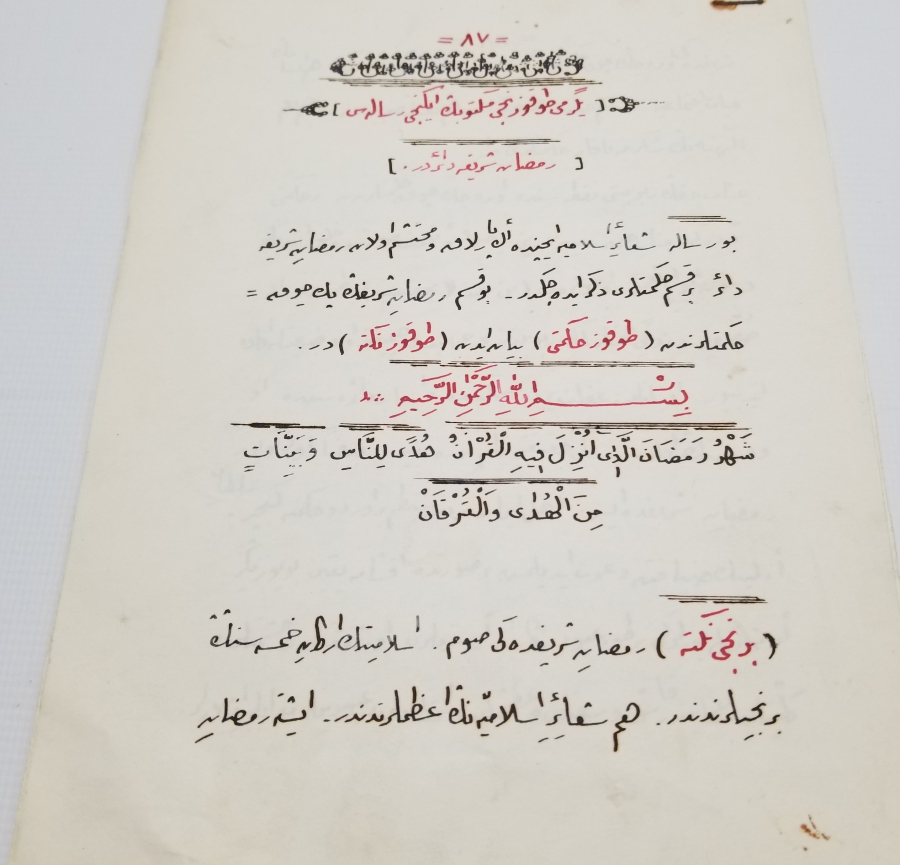 = ٨٧ =
[ يگرمى طوقوزنجى مكتوبڭ ايكنجى رساله‌سى ]
[ رمضان شريفه دائردر . ]
بو رساله شعائر اسلاميه ايچنده اڭ پارلاق و محتشم اولان رمضان شريفه
دائر بر قسم حكمتلرى ذكر ايده‌جكدر - بو قسم رمضان شريفڭ پك چوق =
حكمتلرندن ( طوقوز حكمتى ) بيان ايدن ( طوقوز نكته ) در .
بِسْــــــمِ اللّٰهِ الرَّحْمٰنِ الرَّحِيمِ
شَهْرُ رَمَضَانَ الَّذِى اُنْزِلَ فِيهِ الْقُرْاٰنُ هُدًى لِلنَّاسِ وَبَيِّنَاتٍ
مِنَ الْهُدٰى وَالْفُرْقَانْ
( برنجى نكته ) رمضانِ شريفده‌كى صوم . اسلاميتڭ اركانِ خمسه سنڭ
برنجيلرندندر . هم شعائرِ اسلاميّه نڭ اعظملرندندر . ايشته رمضانِ